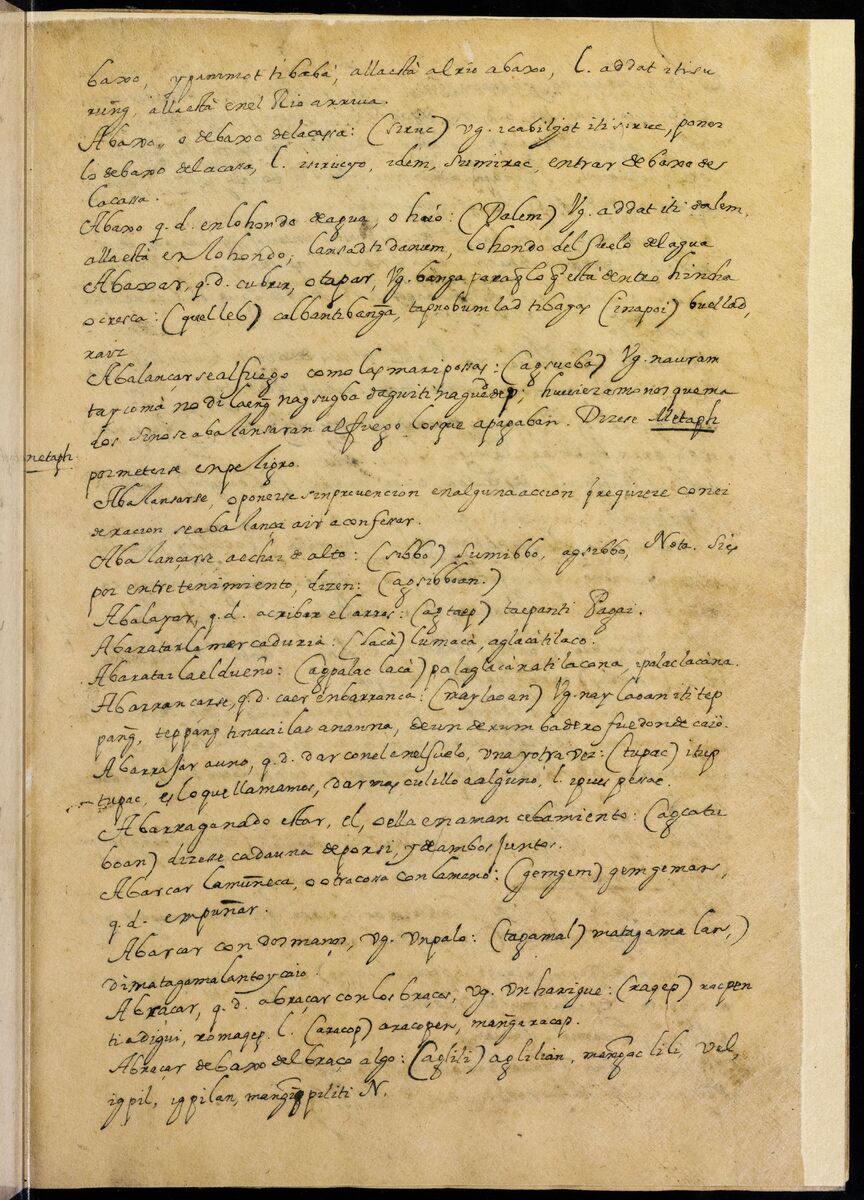 baxo, ypammot ti babà, alla està al rio abaxo, l. addat iti su
rung, alla està en el Rio arriua.
Abaxo, o debaxo dela cassa: (siruc) vg. icabilgot iti siruc, poner
lo debaxo dela casa, l. isirucyo, idem, sumiruc, entrar debaxo des
la cassa.
Abaxo q. d. en lo hondo de agua, o hoio: (Dalem) Vg. addat iti dalem,
alla està en lo hondo; lansad ti danum, lo hondo del suelo del agua
Abaxar, q. d. cubrir, o tapar, Vg. banga para q̃ lo q̃ està dentro hincha
o cresca: (quelleb) calban ti bang̃a, tapno bumlad ti bagas (inapoi) buellad,
raiz
Abalançarse al fuego como las maripossas: (agsugba) Vg. nauram
tay comà no di laeng̃ nagsugba dagiti nagdep; huuieramonos quema
dos sino se abalansaran al fuego los que apagaban. Dizese Metaph
metaph.
por meterse en peligro.
Abalansarse, o ponerse sin preuencion en alguna accion q̃ requiere conci
deracion se abalança a ir a confesar.
Abalançarse, a echar de alto: (sibbo) sumibbo, agsibbo, Nota. Si es
por entretenimiento, dizen: (agsibboan.)
Abalear, q. d. acribar el arros: (agtaep) taepan ti Pagai.
Abaratar la mercaduria: (lacà) lumacà, aglacà ti laco.
Abaratarla el dueño: (agpalac lacà) palaglacà na ti lacona, ipalaclacàna.
Abarrancarse, q. d. caer en barranca: (naylaoan) Vg. naylaoan iti tep
pang̃, teppang̃ ti nacailaoananna, de un derumbadero fue donde caiò.
Abarrasar a uno, q. d. dar con el en el suelo, una y otra vez: (tupac) itup
tupac, es lo que llamamos, dar mas culillo a alguno, l. ipues pesac.
Abarraganado estar, el, o ella en amancebamiento: (agcatu
boan) dizesse cada una de por si, y de ambos juntos.
Abarcar la muñeca, o otra cossa con la mano: (gemgem) gemgeman,
q. d. empuñar.
Abarcar con dos manos, vg. un palo: (tagamal) matagamalan,)
di matagamalan toy caio.
Abraçar, q. d. abraçar con los braços, vg. Un harigue: (raqep) racpen
ti adigui, romaqep. l. (aracop) aracopen, mang̃aracop.
Abraçar debaxo del braço algo: (aglili) aglilian, mang̃ac lili, vel,
iqpil, iqpilan, mang̃iqpil iti N.